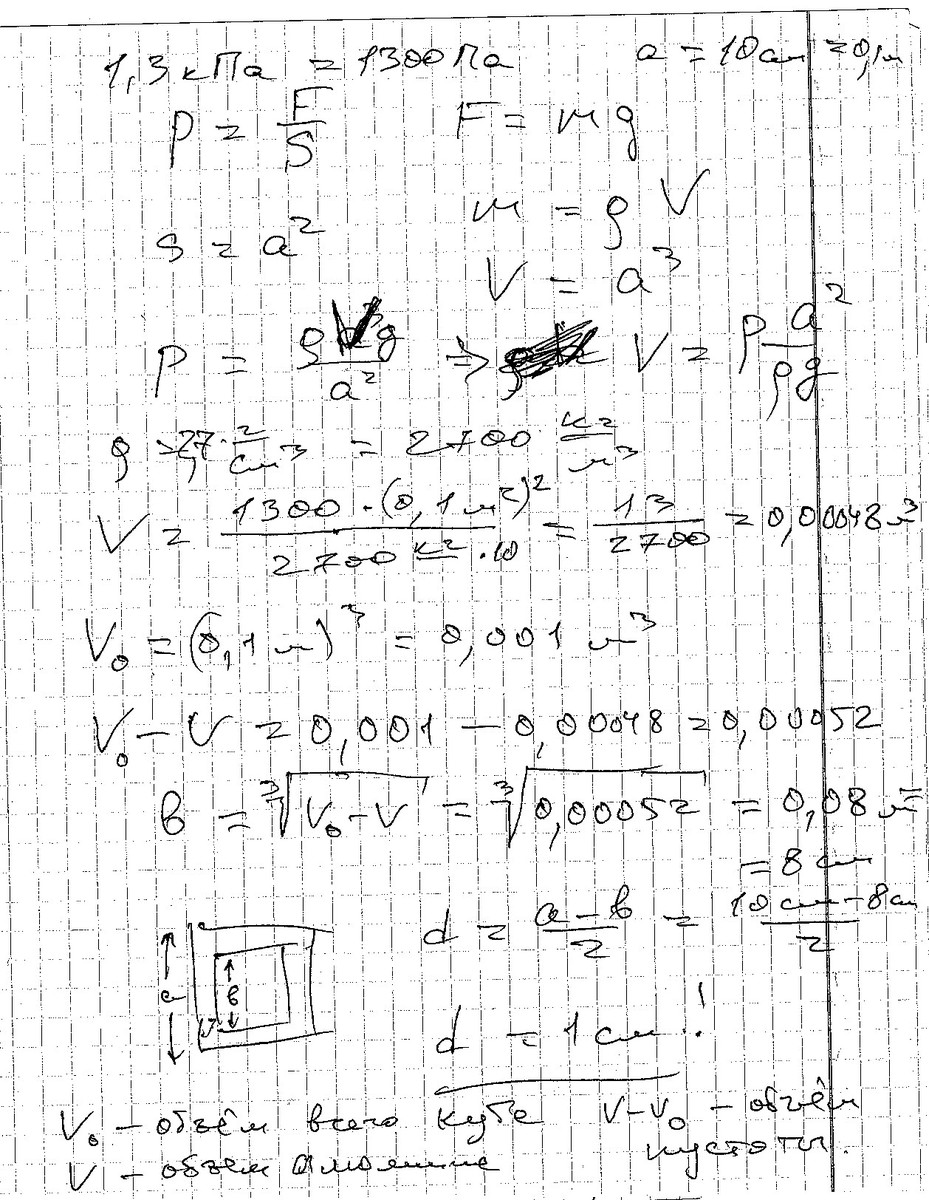 1,3 кПа = 1300 Па   a = 10 см = 0,1 м
p = F/S   F = mg
m = ρV
S = a²
V = a³
p = ρVg/a² ⇒ V = p a²/ρg
ρ = 2,7 г/см³ = 2700 кг/м³
V = 1300 · (0,1 м²)² / 2700 кг/ · 10 = 13/2700 = 0,00048 м³
V₀ = (0,1 м)³ = 0,001 м³
V₀ − V = 0,001 − 0,0048 = 0,00052
в = ³√(V₀ − V) = ³√0,00052 = 0,08 м =
= 8 см
d = (a − в)/2 = (10 см − 8 см)/2
a в
d = 1 см !
V₀ – объём всего куба   V – V₀ – объём
V – объем алюминие   пустоты.